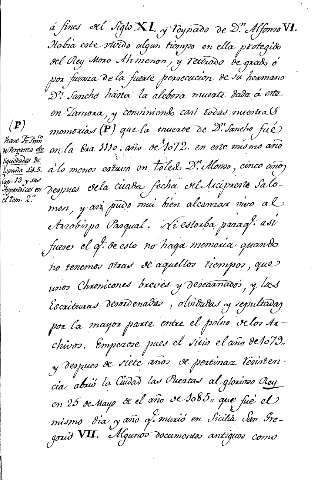 á fines del Siglo XI. y reynado de D.n Alfonso VI.
Habia este vivido algun tiempo en ella protegido
del Rey Moro Almenon, y retirado de grado ó
por fuerza de la fuerte persecucion de su hermano
D.n Sancho hasta la alebosa muerte dada á este
en Zamora, y conviniendo casi todas nuestras
memorias (P) que la muerte de D.n Sancho fué
en la Era 1110. año de 1072. en este mismo año
á lo menos estuvo en Toled.o D.n Alonso, cinco años
despues de la cuarta fecha del Arcipreste Salo-
mon, y aun pudo mui bien alcanzar vivo al
Arzobispo Pasqual. Ni estorba paraq.e asi
fuese el q.e de esto no haga memoria quando
no tenemos otras de aquellos tiempos, que
unos Chronicones breves y descarnados, y las
Escrituras desordenadas, olvidadas y sepultadas
por la mayor parte entre el polvo de los Ar-
chivos. Empezose pues el sitio el año de 1079.
y despues de siete años de pertinaz resisten-
cia abrió la Ciudad las Puertas al glorioso Rey
en 25 de Mayo de el año de 1085. que fue el
mismo dia y año q.e murió en Sicilia San Gre-
gorio VII. Algunos documentos antiguos como
(P)